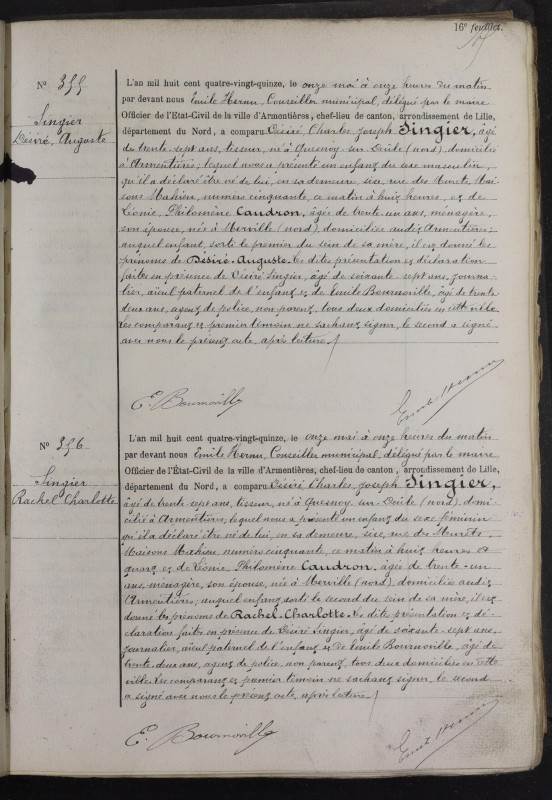 16e feuillet.
No 355
Singier
Désiré, Auguste
L'an mil huit cent quatre-vingt-quinze, le onze mai à onze heures du matin
par devant nous Emile Hernu, Conseiller municipal, délégué par le maire
Officier de l'Etat-Civil de la ville d'Armentières, chef-lieu de canton, arrondissement de Lille,
département du Nord, a comparu Désiré Charles Joseph Singier, âgé
de trente-sept ans, tisseur, né à Quesnoy-sur-Deûle (nord) domicilié
à Armentières, lequel nous a présenté un enfant du sexe masculin,
qu'il a déclaré être né de lui, en sa demeure, sise, rue des Murets, Mai-
sons Mahieu, numéro cinquante, ce matin à huit heures, et de
Léonie, Philomène Caudron, âgée de trente-un ans, ménagère,
son épouse, née à Merville (nord), domiciliée audit Armentières;
auquel enfant, sorti le premier du sein de sa mère, il est donné les
prénoms de Désiré-Auguste. Les dites présentation et déclaration
faites en présence de Désiré Singier, âgé de soixante-sept ans, journa-
lier, aïeul paternel de l'enfant et de Emile Bournoville, âgé de trente
deux ans, agent de police, non parent, tous deux domiciliés en cette ville.
Les comparant et premier témoin ne sachant signer, le second a signé
avec nous le présent acte, après lecture /
E. Bournoville
Emile Hernu
No 356
Singier
Rachel Charlotte
L'an mil huit cent quatre-vingt-quinze, le onze mai à onze heures du matin
par devant nous Emile Hernu, Conseiller municipal, délégué par le maire
Officier de l'État-Civil de la ville d'Armentières, chef-lieu de canton, arrondissement de Lille,
département du Nord, a comparu Désiré Charles Joseph Singier,
âgé de trente-sept ans, tisseur, né à Quesnoy-sur-Deûle (nord) domi-
cilié à Armentières, lequel nous a présenté un enfant du sexe féminin
qu'il a déclaré être né de lui, en sa demeure, sise, rue des Murets,
Maisons Mahieu numéro cinquante, ce matin à huit heures et
quart et de Léonie, Philomène Caudron, âgée de trente-un
ans, ménagère, son épouse, née à Merville (nord), domiciliée audit
Armentières; auquel enfant, sorti le second du sein de sa mère, il est
donné les prénoms de Rachel-Charlotte. Les dites présentation et dé-
claration faites en présence de Désiré Singier, âgé de soixante-sept ans,
journalier, aïeul paternel de l'enfant et de Emile Bournoville, âgé de
trente-deux ans, agent de police, non parent, tous deux domiciliés en cette
ville. Les comparant et premier témoin ne sachant signer, le second
a signé avec nous le présent acte, après lecture /
E. Bournoville
Emile Hernu